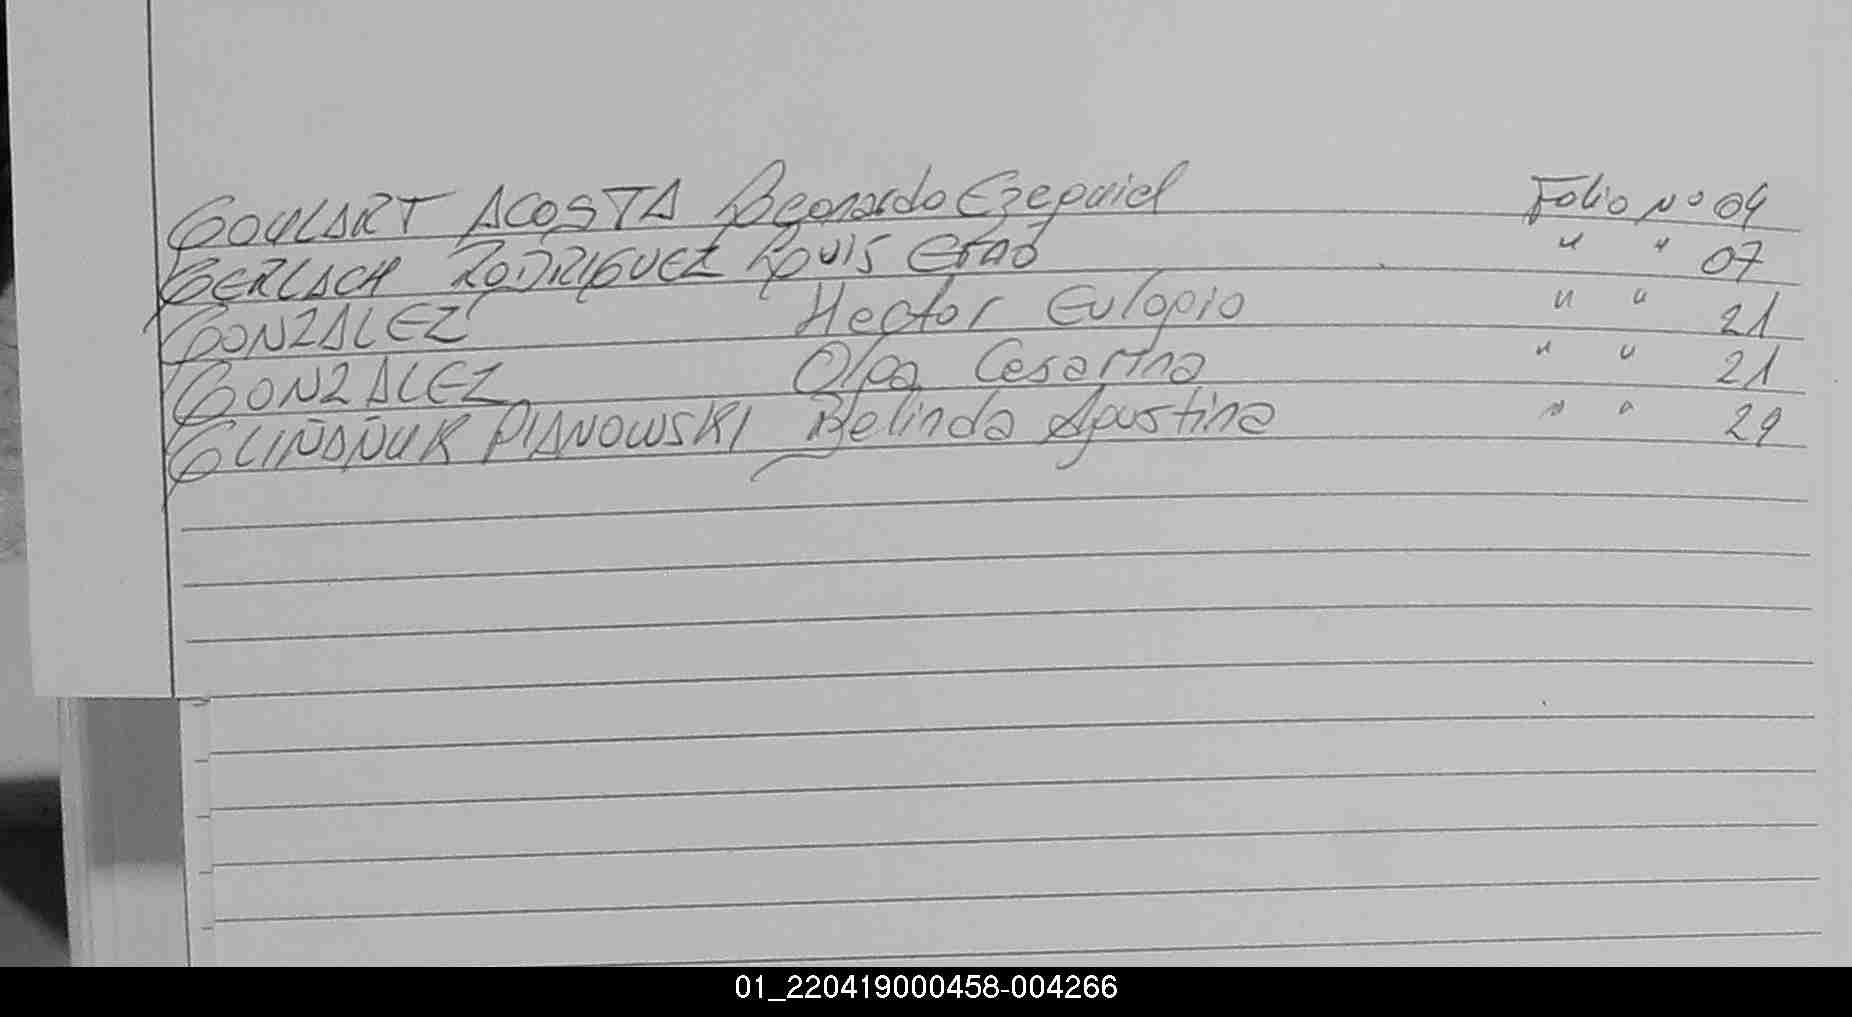 GOULART ACOSTA Beonardo Ezequiel Folio Nº 04
GERLACH RODRIGUEZ Louis " " 07
GONZALEZ Hector Eulogio " " 21
GONZALEZ Olga Cesarina " " 21
GLIÑAÑUK PIANOWSKI Belinda Agustina " " 29
01_220419000458-004266